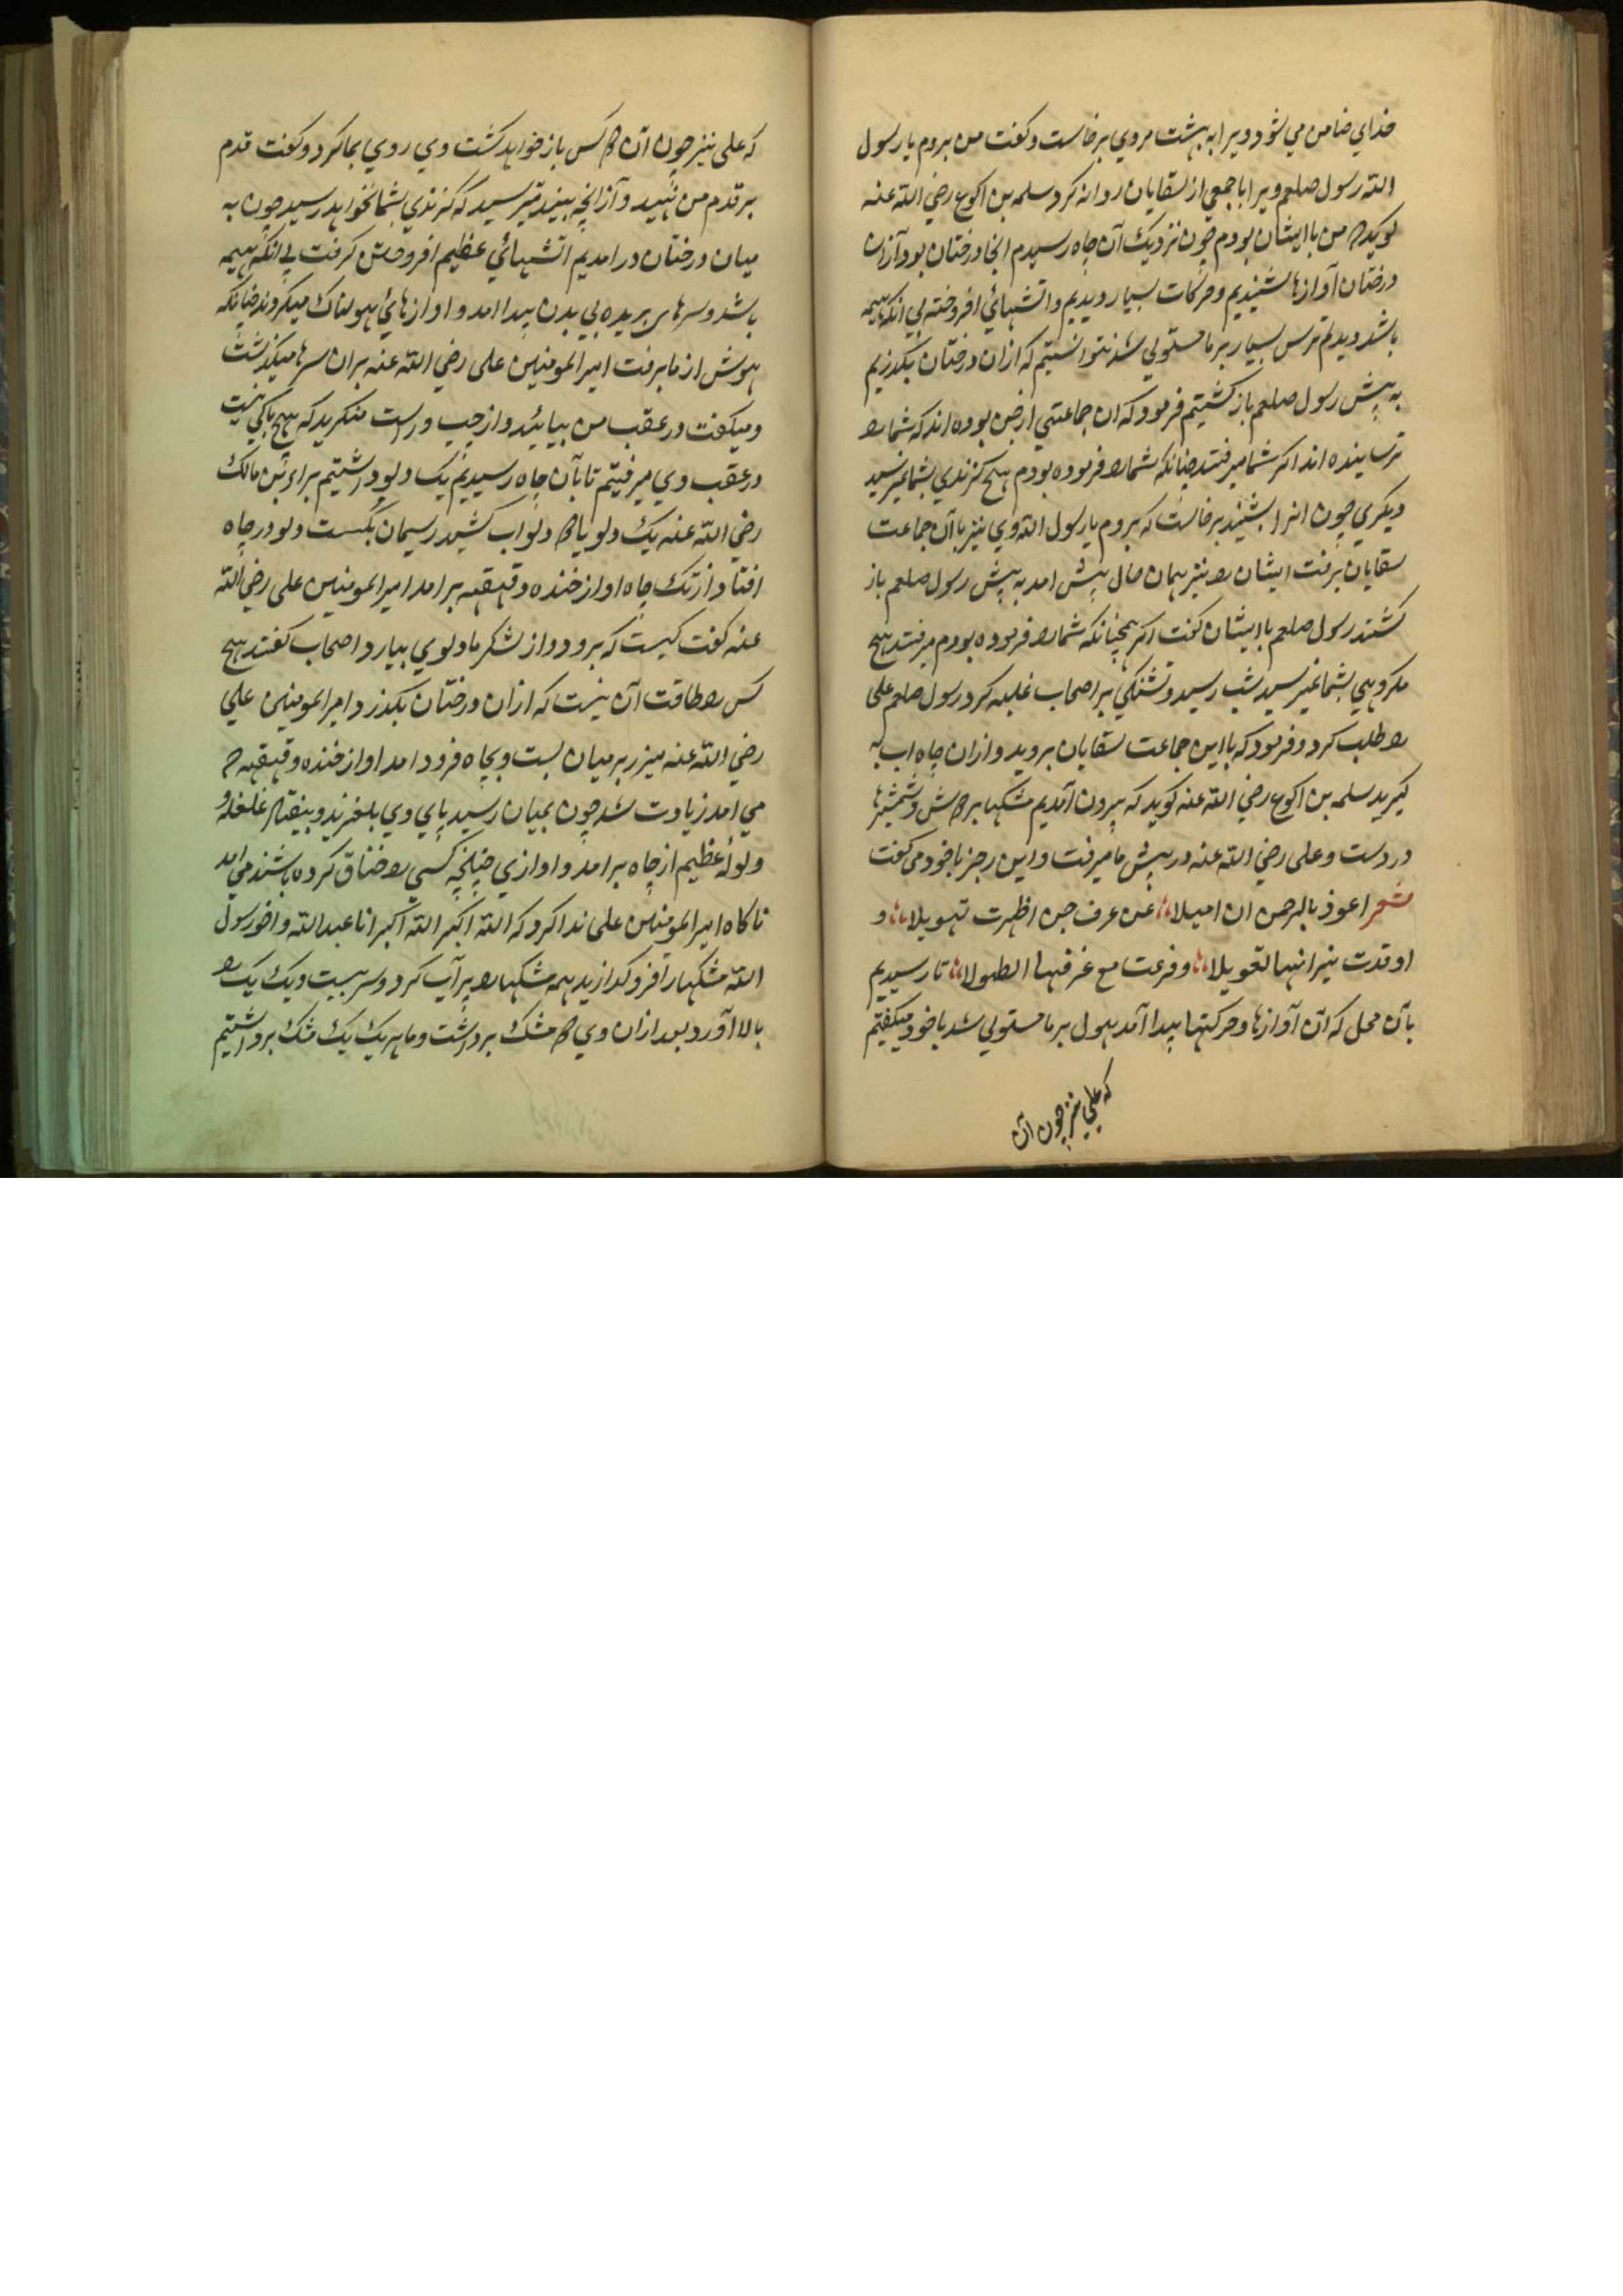 خداي ضامن مي شود ويرا به بهشت مروي برخاست وكفت من بروم يا رسول
الله رسول صلعم ويرا با جمعي از سقايان روانه كرد سلمه بن اكوع رضي الله عنه
كويد كه من با ايشان بودم چون نزديك آن چاه رسيدم انجا درختان بود و از ان
درختان آوازها شنيديم وحركات بسيار ديديم و اتشهائي افروخته بي انكه هيمه
باشد ديدم ترس بسيار بر ما مستولي شد نتوانستيم كه ازان درختان بكذريم
به پيش رسول صلعم باز كشتيم فرمود كه ان جماعتي از جن بوده اند كه شما را
ترسانيده اند اكر شما ميرفتيد چنانكه شما را فرموده بودم هيچ كزندي بشما نميرسيد
ديكري چون انرا بشنيد برخاست كه بروم يا رسول الله وي نيز با آن جماعت
سقايان برفت ايشان را نيز همان حال پيش امد به پيش رسول صلعم باز
كشتند رسول صلعم با ايشان كفت اكر همچنانكه شما را فرموده بودم ميرفتيد هيچ
مكروهي بشما نميرسيد شب رسيد و تشنكي بر اصحاب غلبه كرد رسول صلعم علي
را طلب كرد و فرمود كه با اين جماعت سقايان برويد و ازان چاه اب به
كيريد سلمه بن اكوع رضي الله عنه كويد كه بيرون آمديم مشكها بر دوش و شمشيرها
در دست و علي رضي الله عنه در پيش ما ميرفت و اين رجز با خود مي كفت
شعر اعوذ بالرحمن ان اميلا عن عرف جن اظهرت تهويلا و
اوقدت نيرانها تعويلا و قرعت مع غرفها الطبولا تا رسيديم
بآن محل كه آن آوازها و حركتها پيدا آمد هول بر ما مستولي شد با خود ميكفتيم
كه علي نيز چون آن
كه علي نيز چون آن دو كس باز خواهد كشت وي روي بما كرد و كفت قدم
بر قدم من نهيد و از انچه بينيد مترسيد كه كزندي بشما نخواهد رسيد چون به
ميان درختان در امديم اتشهائي عظيم افروختن كرفت بي انكه هيمه
باشد و سرهاي بريده بي بدن پيدا امد و اوازهائي هولناك ميكردند چنانكه
هوش از ما برفت امير المومنين علي رضي الله عنه بران سرها ميكذشت
و ميكفت در عقب من بيائيد و از چپ و راست منكريد كه هيچ باكي نيست
در عقب وي ميرفتيم تا بآن چاه رسيديم يك دلو داشتيم براء بن مالك
رضي الله عنه يك دلو يا دو دلو اب كشيد ريسمان بكسست و دلو در چاه
افتاد از تك چاه اواز خنده و قهقهه برامد امير المومنين علي رضي الله
عنه كفت كيست كه برود و از لشكر ما دلوي بيارد اصحاب كفتند هيچ
كس را طاقت آن نيست كه ازان درختان بكذرد امير المومنين علي
رضي الله عنه ميزر بر ميان بست و بچاه فرود امد اواز خنده و قهقهه كه
مي امد زيادت شد چون بميان رسيد پاي وي بلغزيد و بيفتاد غلغله و
ولوله عظيم از چاه برامد و اوازي چنانچه كسي را خناق كرده باشند مي امد
ناكاه امير المومنين علي ندا كرد كه الله اكبر الله اكبر انا عبد الله و اخو رسول
الله مشكها را فرو كذاريد همه مشكها را پر آب كرد و سر ببست و يك يك را
بالا آورد بعد ازان وي دو مشك برداشت و ما هريك يك مشك برداشتيم